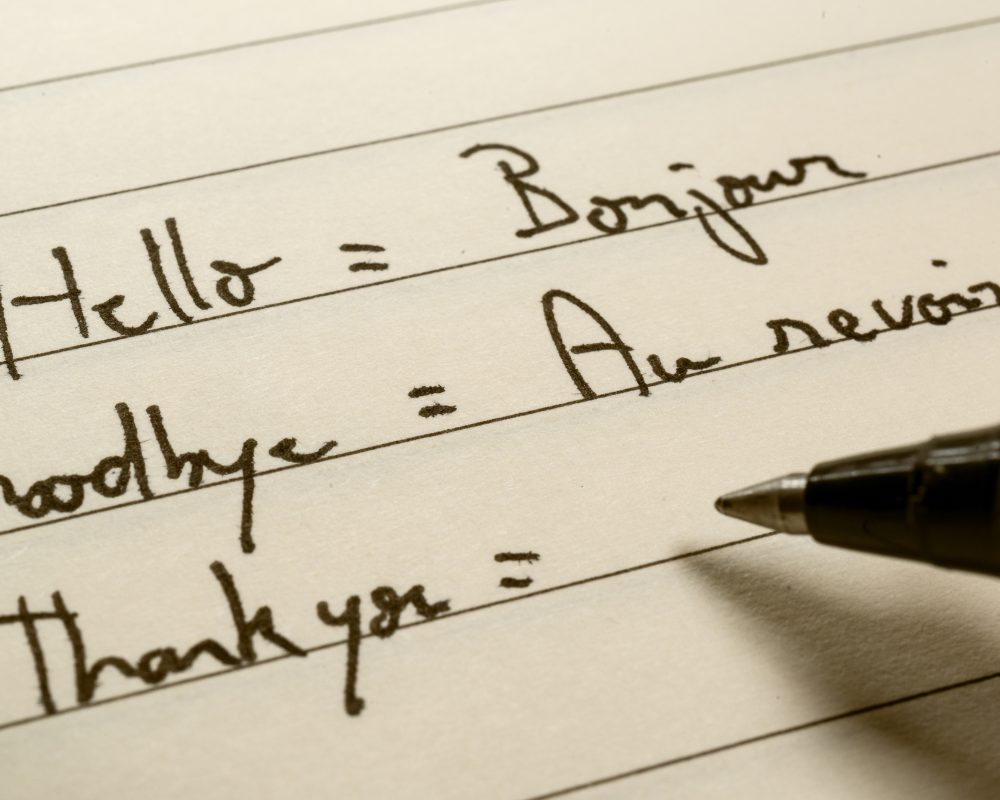 Hello = Bonjour
oodbye = Au revoir
Thank you =